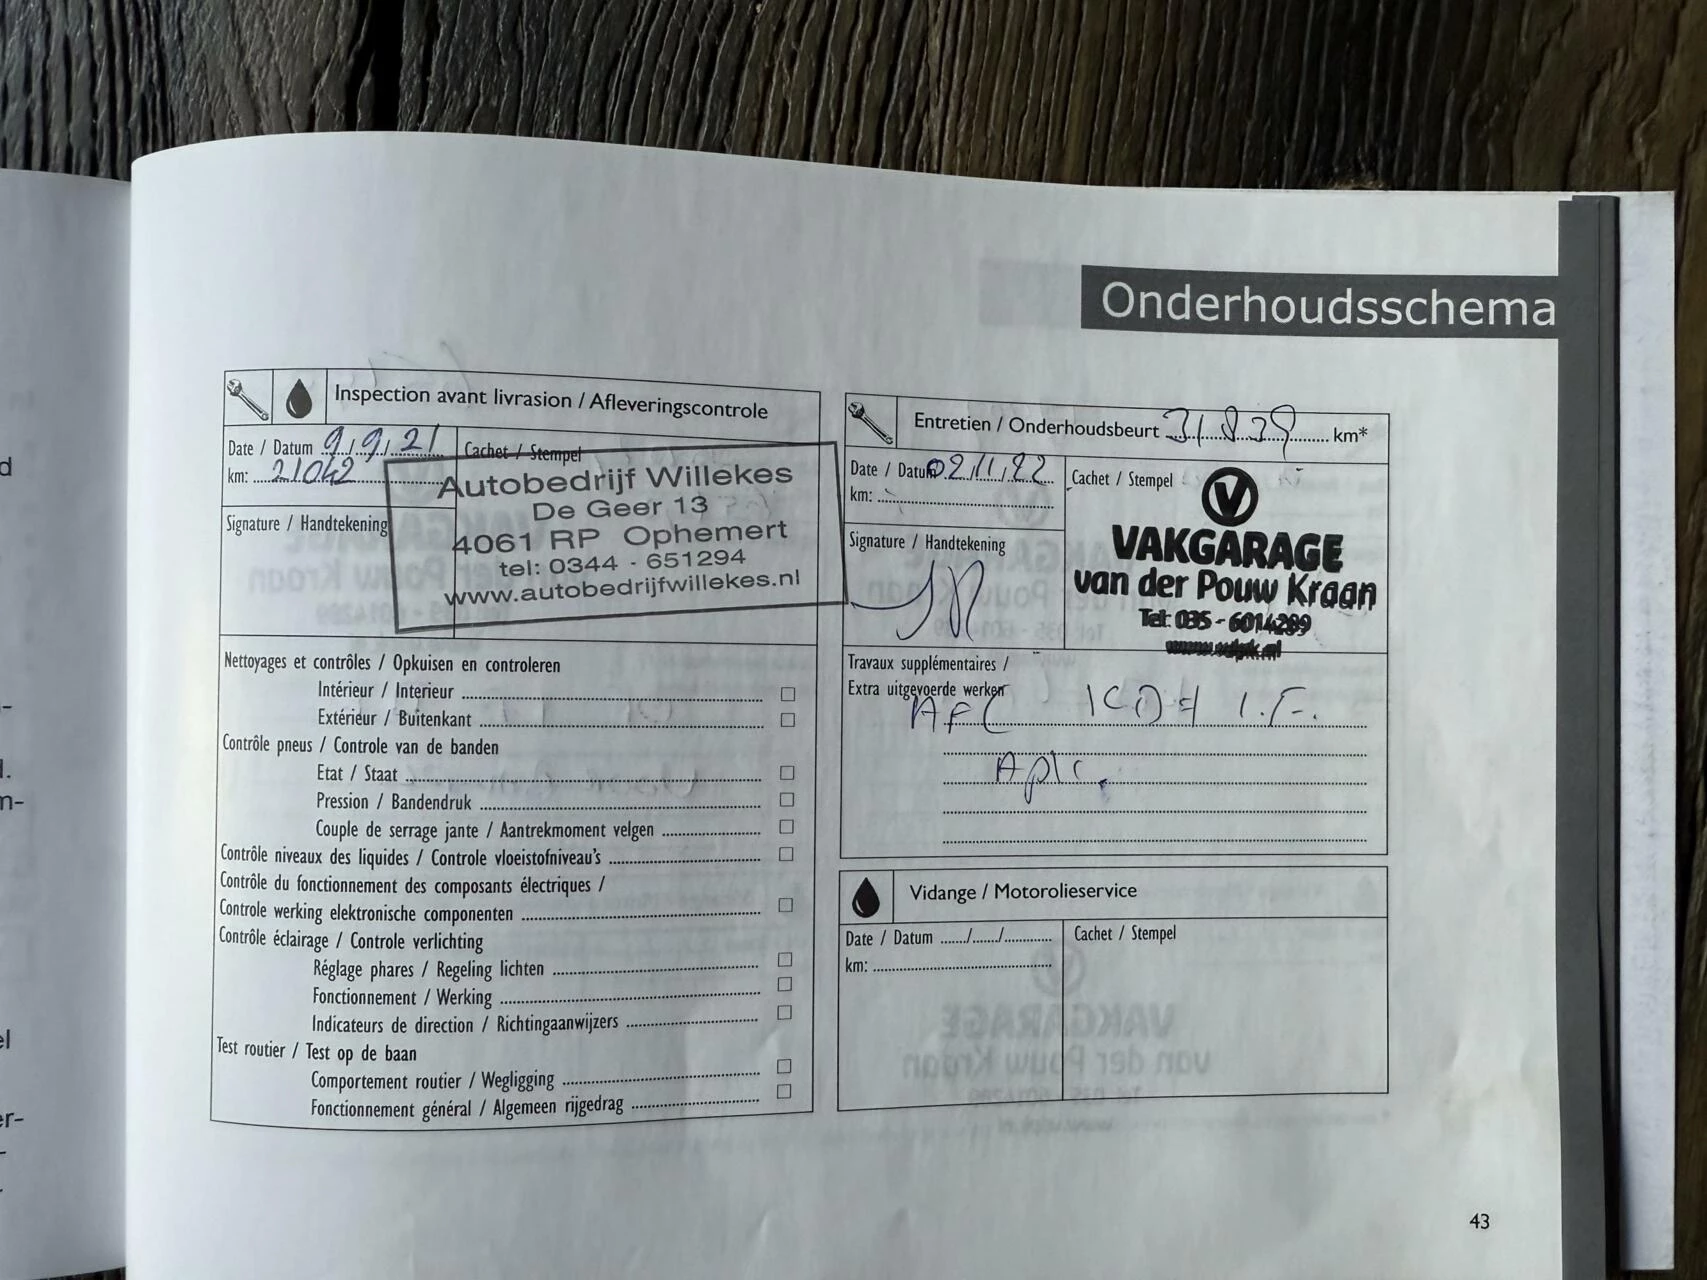 Onderhoudsschema
Inspection avant livrasion / Afleveringscontrole
Date / Datum 9/9/21
km: 21042
Cachet / Stempel
Signature / Handtekening
Autobedrijf Willekes
De Geer 13
4061 RP Ophemert
tel: 0344 - 651294
www.autobedrijfwillekes.nl
Nettoyages et contrôles / Opkuisen en controleren
Intérieur / Interieur
Extérieur / Buitenkant
Contrôle pneus / Controle van de banden
Etat / Staat
Pression / Bandendruk
Couple de serrage jante / Aantrekmoment velgen
Contrôle niveaux des liquides / Controle vloeistofniveau's
Contrôle du fonctionnement des composants électriques /
Controle werking elektronische componenten
Contrôle éclairage / Controle verlichting
Réglage phares / Regeling lichten
Fonctionnement / Werking
Indicateurs de direction / Richtingaanwijzers
Test routier / Test op de baan
Comportement routier / Wegligging
Fonctionnement général / Algemeen rijgedrag
Entretien / Onderhoudsbeurt 31.839 km*
Date / Datum 02/11/22
km:
Cachet / Stempel
Signature / Handtekening
VAKGARAGE
van der Pouw Kraan
Tel: 035 - 6014289
Travaux supplémentaires /
Extra uitgevoerde werken
Vidange / Motorolieservice
Date / Datum ....../....../............
km:
Cachet / Stempel
43